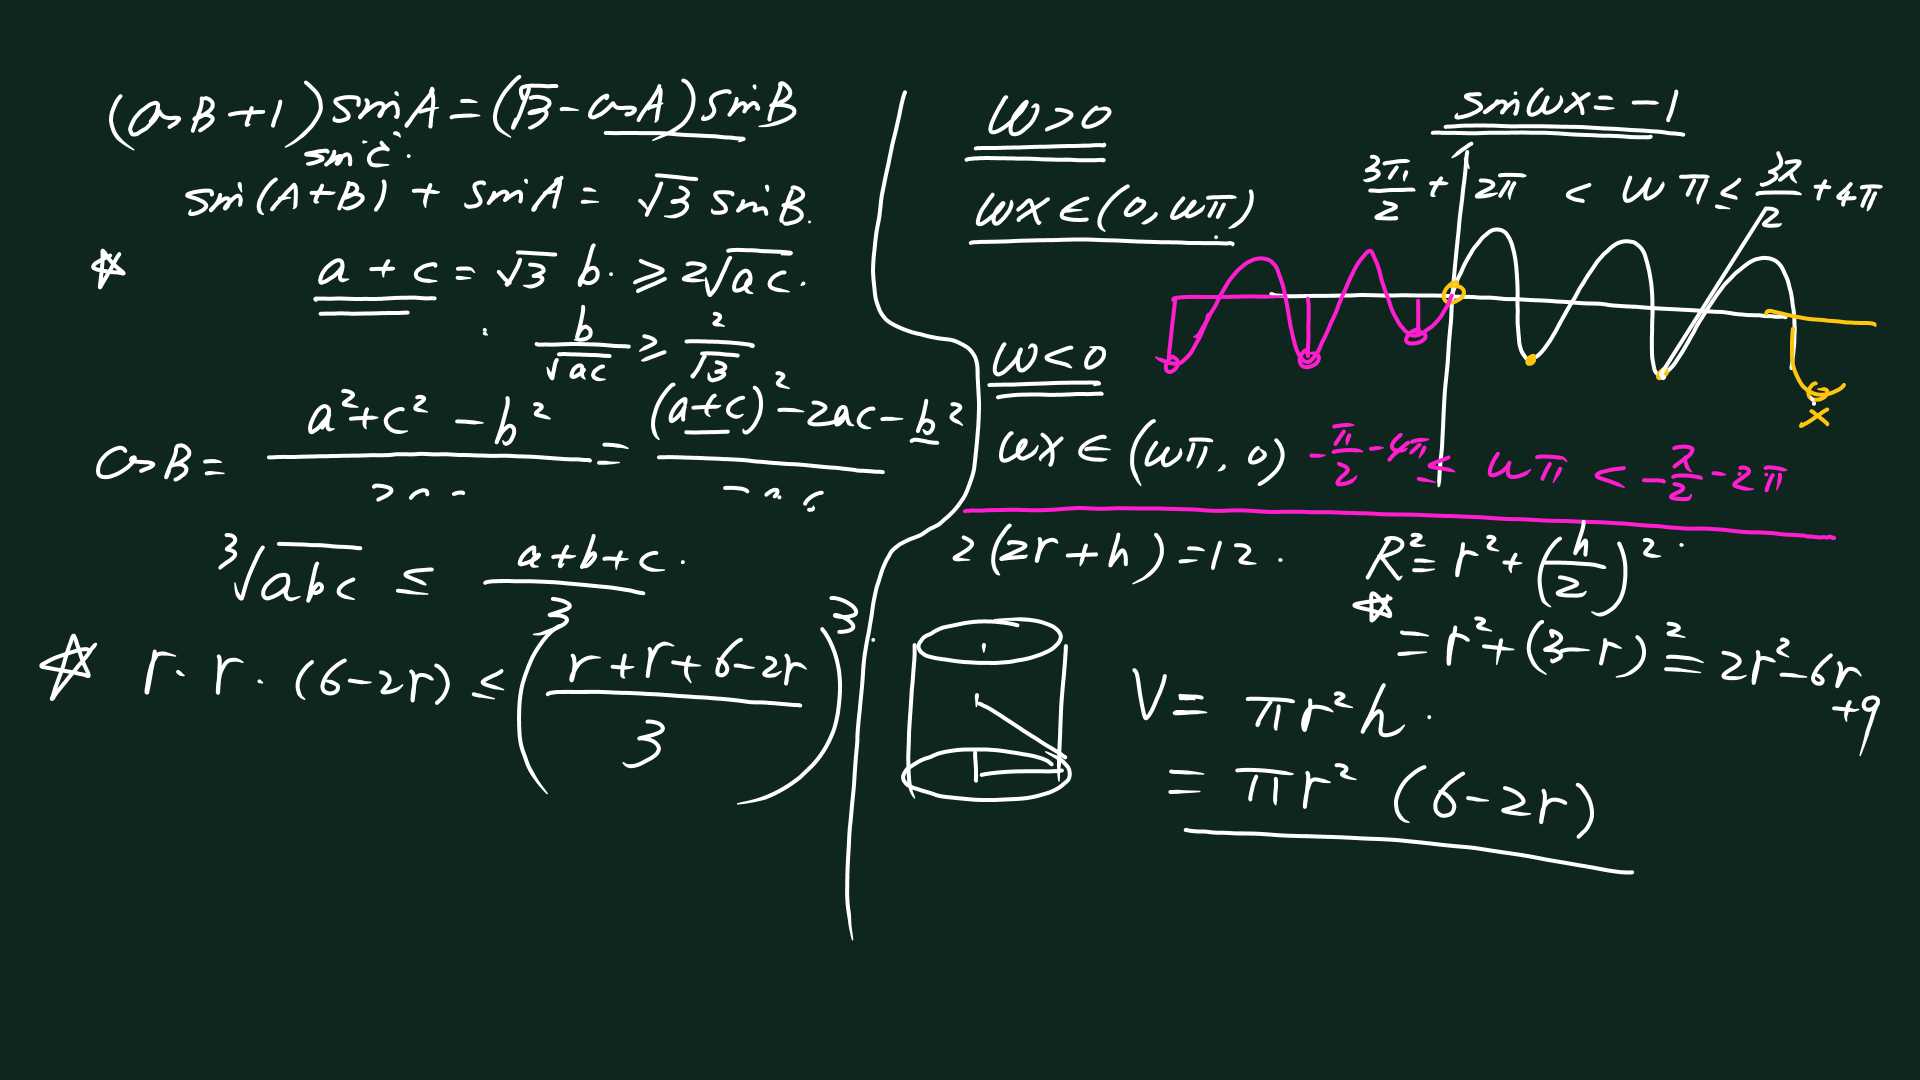 (cosB+1)sinA=(√3-cosA)sinB
sinC.
sin(A+B) + sinA = √3 sinB.
☆ a + c = √3 b. ≥ 2√ac.
b/√ac ≥ 2/√3
cosB = (a²+c²-b²)/ = ((a+c)²-2ac-b²)/
³√abc ≤ (a+b+c)/3.
☆ r·r·(6-2r) ≤ ((r+r+6-2r)/3)³.
w>0
wx∈(0,wπ)
sinwx=-1
3π/2 + 2π < wπ ≤ 3π/2 + 4π
x
w<0
wx∈(wπ,0)
-π/2-4π ≤ wπ < -π/2-2π
2(2r+h)=12.
R²=r²+(h/2)².
☆ =r²+(3-r)²=2r²-6r+9
V= πr²h.
= πr²(6-2r)